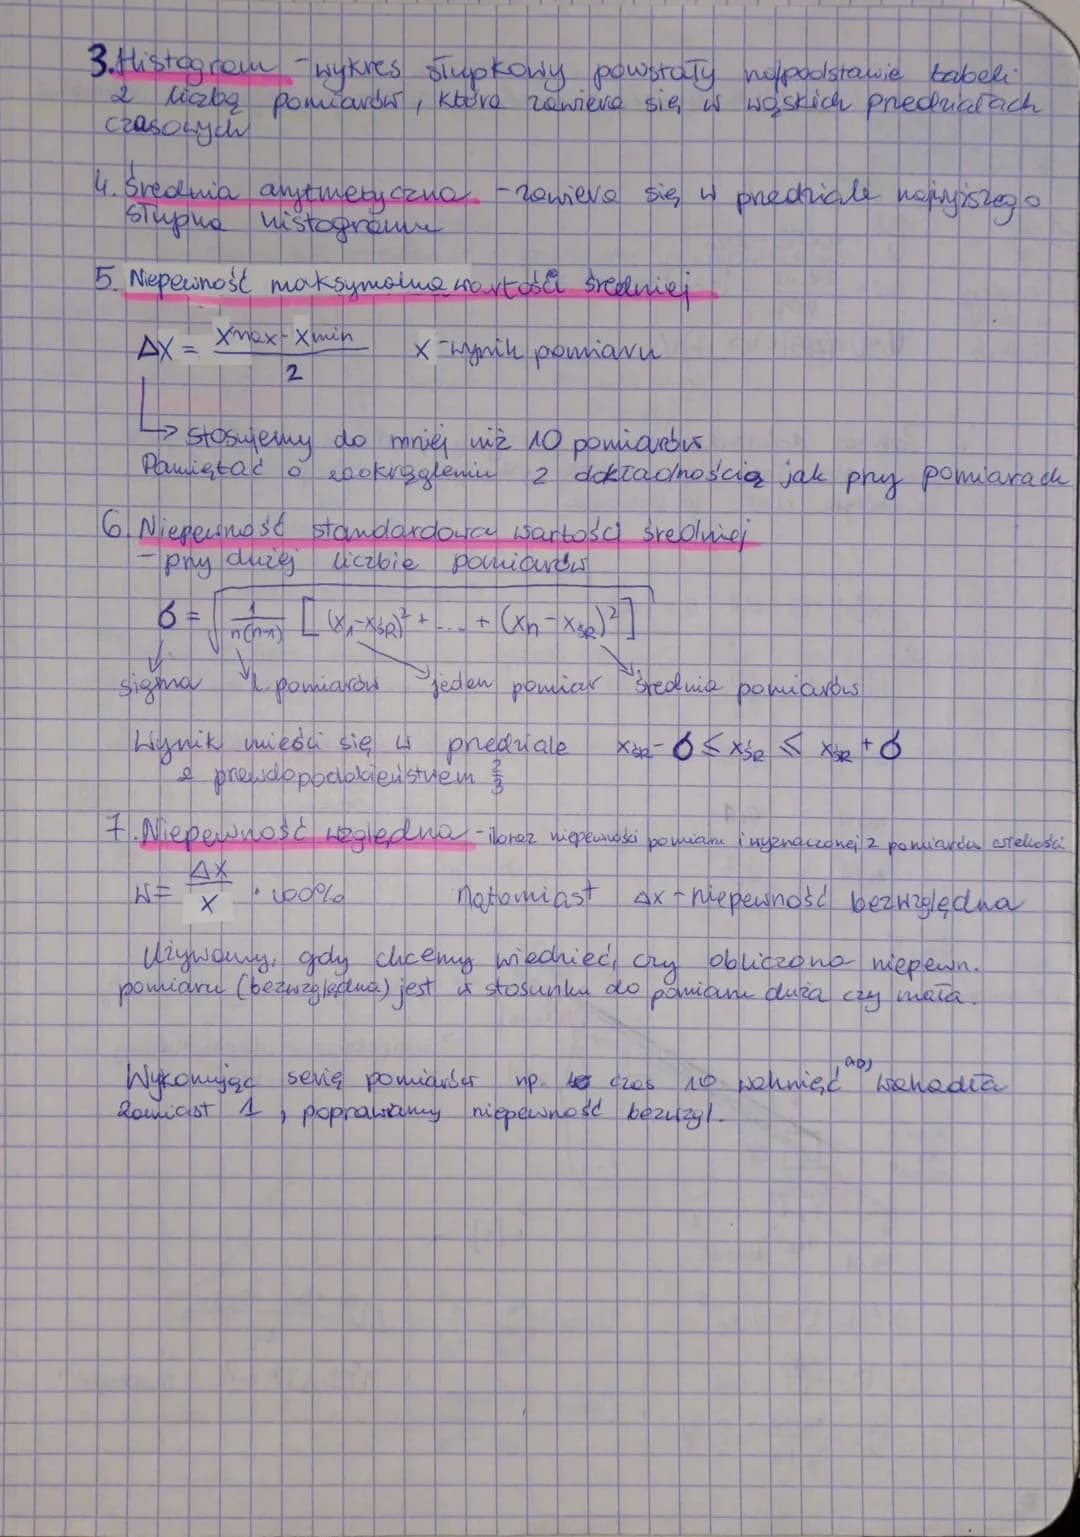 3. Histogram - wykres słupkowy powstały na podstawie tabeli
z liczbą pomiarów, która zawiera się w wąskich przedziałach
czasowych
4. Średnia arytmetyczna - zawiera się w przedziale najwyższego
słupka histogramu
5. Niepewność maksymalna wartości średniej
Δx = (xmax - xmin) / 2    x - wynik pomiaru
↳ stosujemy do mniej niż 10 pomiarów
Pamiętać o zaokrągleniu z dokładnością jak przy pomiarach
6. Niepewność standardowa wartości średniej
- przy dużej liczbie pomiarów
σ = √(1/n(n-1) [(x₁-xśR)² + .... + (xn - xśR)²])
sigma l. pomiarów jeden pomiar średnia pomiarów
Wynik mieści się w przedziale xśR - σ ≤ xśR ≤ xśR + σ
z prawdopodobieństwem 2/3
7. Niepewność względna - iloraz niepewności pomiaru i wyznaczonej z pomiarów wielkości
w = Δx/x · 100%    Natomiast Δx - niepewność bezwzględna
Używamy, gdy chcemy wiedzieć, czy obliczona niepewn.
pomiaru (bezwzględna) jest w stosunku do pomiaru duża czy mała.
Wykonując serię pomiarów np. czas 10 wahnięć wahadła
zamiast 1, poprawiamy niepewność bezwzgl.